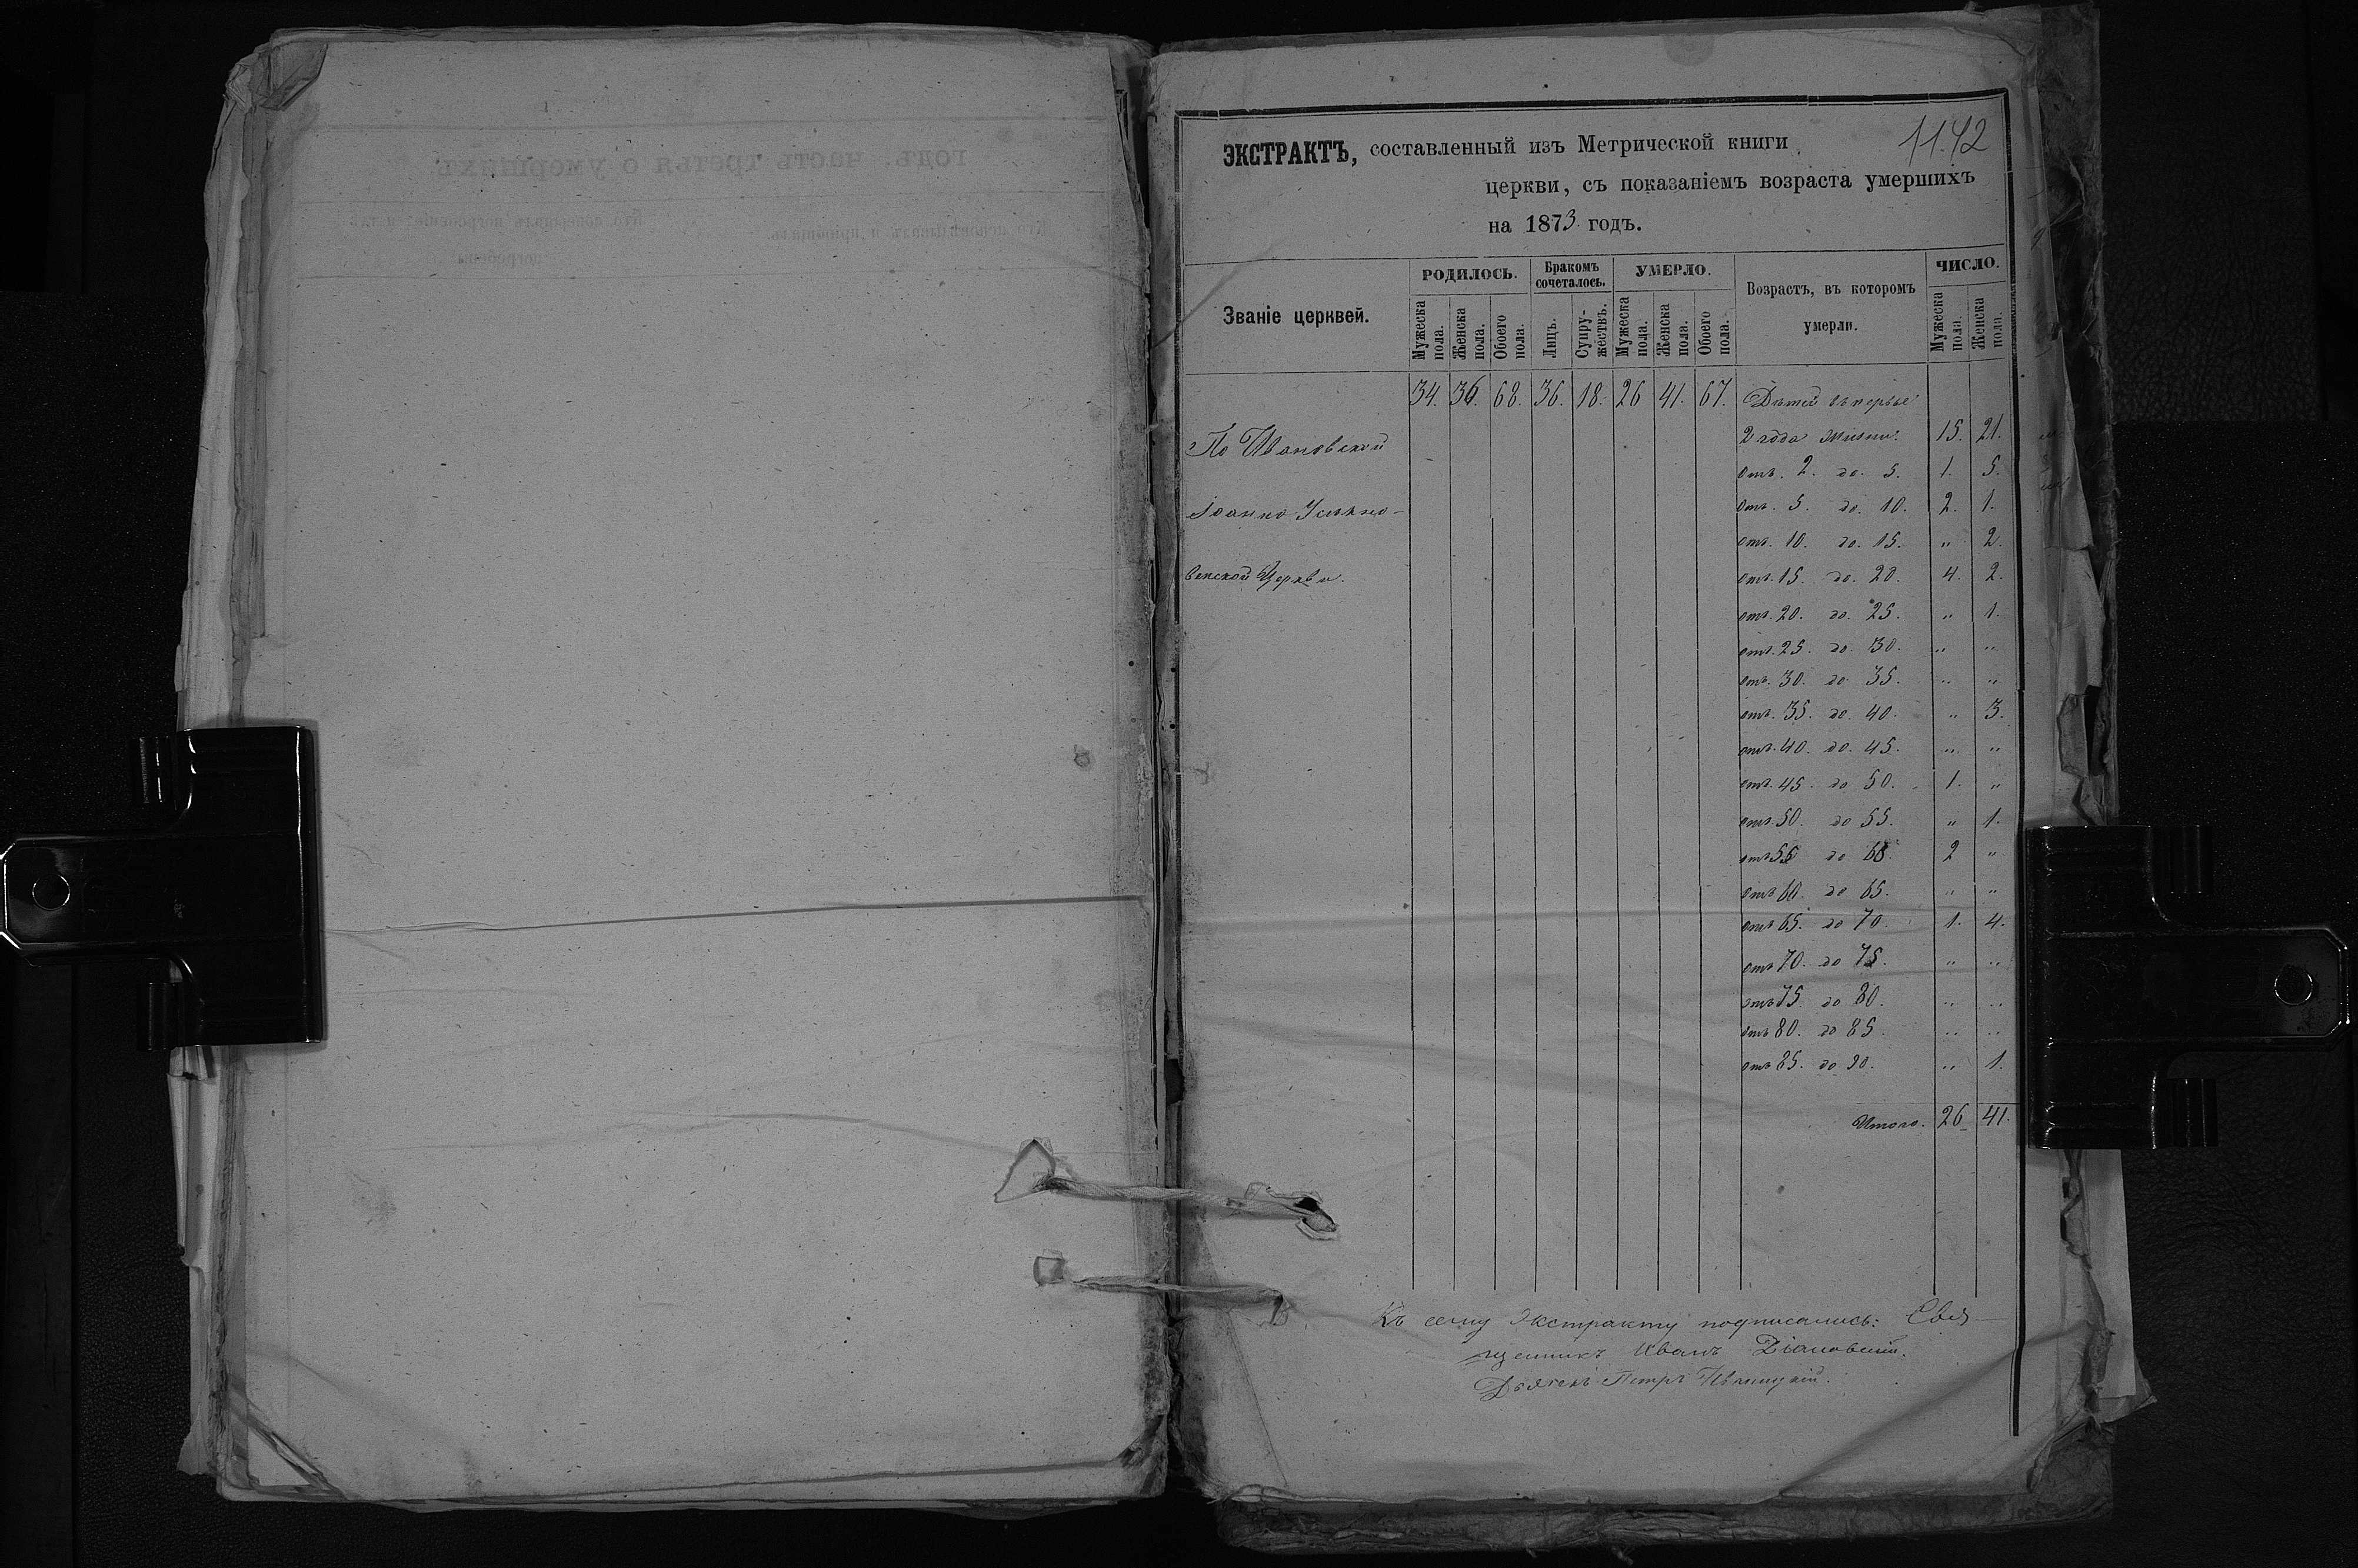 1142
ЭКСТРАКТЪ, составленный изъ Метрической книги
церкви, съ показаніемъ возраста умершихъ
на 1873 годъ.
Званіе церквей.
РОДИЛОСЬ.
Бракомъ сочеталось.
УМЕРЛО.
Возрастъ, въ которомъ умерли.
ЧИСЛО.
Мужеска пола.
Женска пола.
Обоего пола.
Лицъ.
Супружествъ.
Мужеска пола.
Женска пола.
Обоего пола.
Мужеска пола.
Женска пола.
34. 36. 68. 36. 18. 26 41. 67. Дѣтей въ первые
По Ивановской
2 года жизни. 15. 21.
отъ. 2. до. 5. 1. 5.
Іоанно-Усѣкно-
отъ. 5. до. 10. 2. 1.
отъ. 10. до. 15. „ 2.
венской Церкви.
отъ. 15. до. 20. 4. 2.
отъ. 20. до. 25. „ 1.
отъ. 25. до. 30. „ „
отъ. 30. до 35. „ „
отъ. 35. до. 40. „ 3.
отъ. 40. до. 45. „ „
отъ. 45. до 50. 1. „
отъ. 50. до 55. „ 1.
отъ 55 до 60. 2 „
отъ 60 до 65. „ „
отъ 65. до 70. 1. 4.
отъ 70. до 75. „ „
отъ 75 до 80. „ „
отъ 80. до 85. „ „
отъ 85. до 90. „ 1.
Итого. 26 41.
Къ сему экстракту подписались: Свя-
щенникъ Иванъ
Петръ